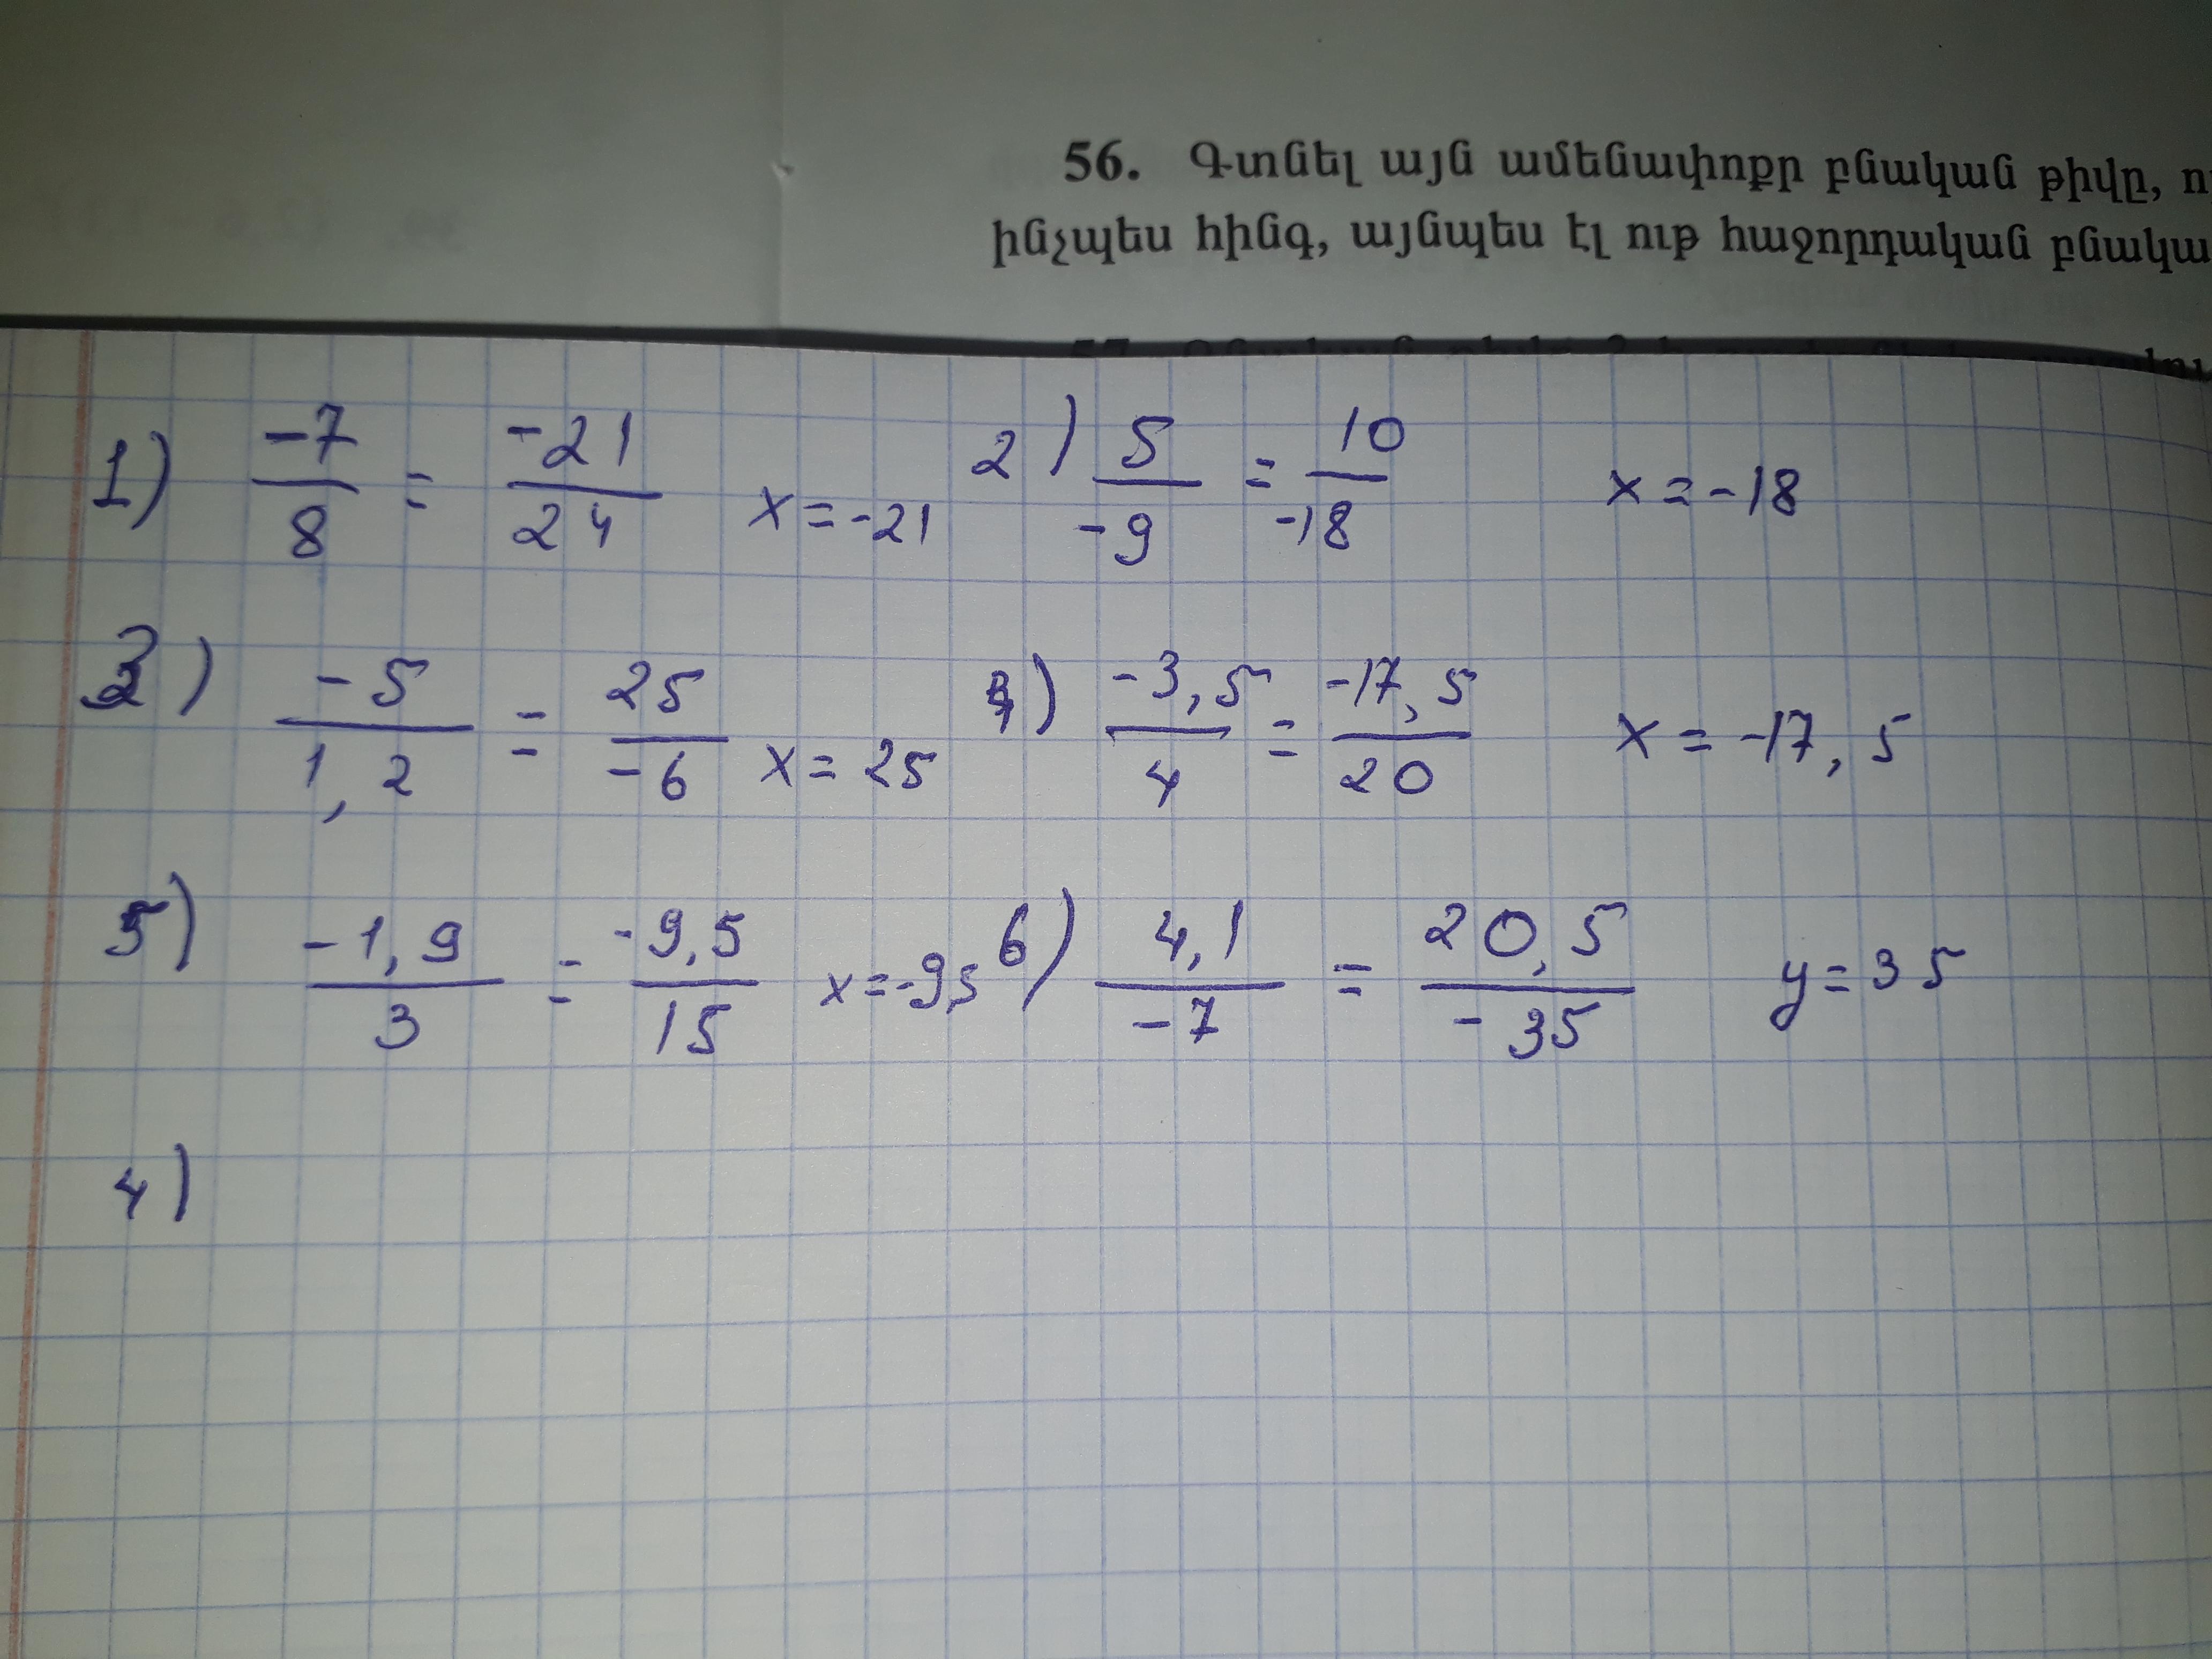 56. Գտնել այն ամենափոքր բնական թիվը,
ինչպես հինգ, այնպես էլ ութ հաջորդական
1) -7/8 = -21/24 x = -21 2) 5/-9 = 10/-18 x = -18
3) -5/1,2 = 25/-6 x = 25 4) -3,5/4 = -17,5/20 x = -17,5
5) -1,9/3 = -9,5/15 x = -9,5 6) 4,1/-7 = 20,5/-35 y = 35
4)